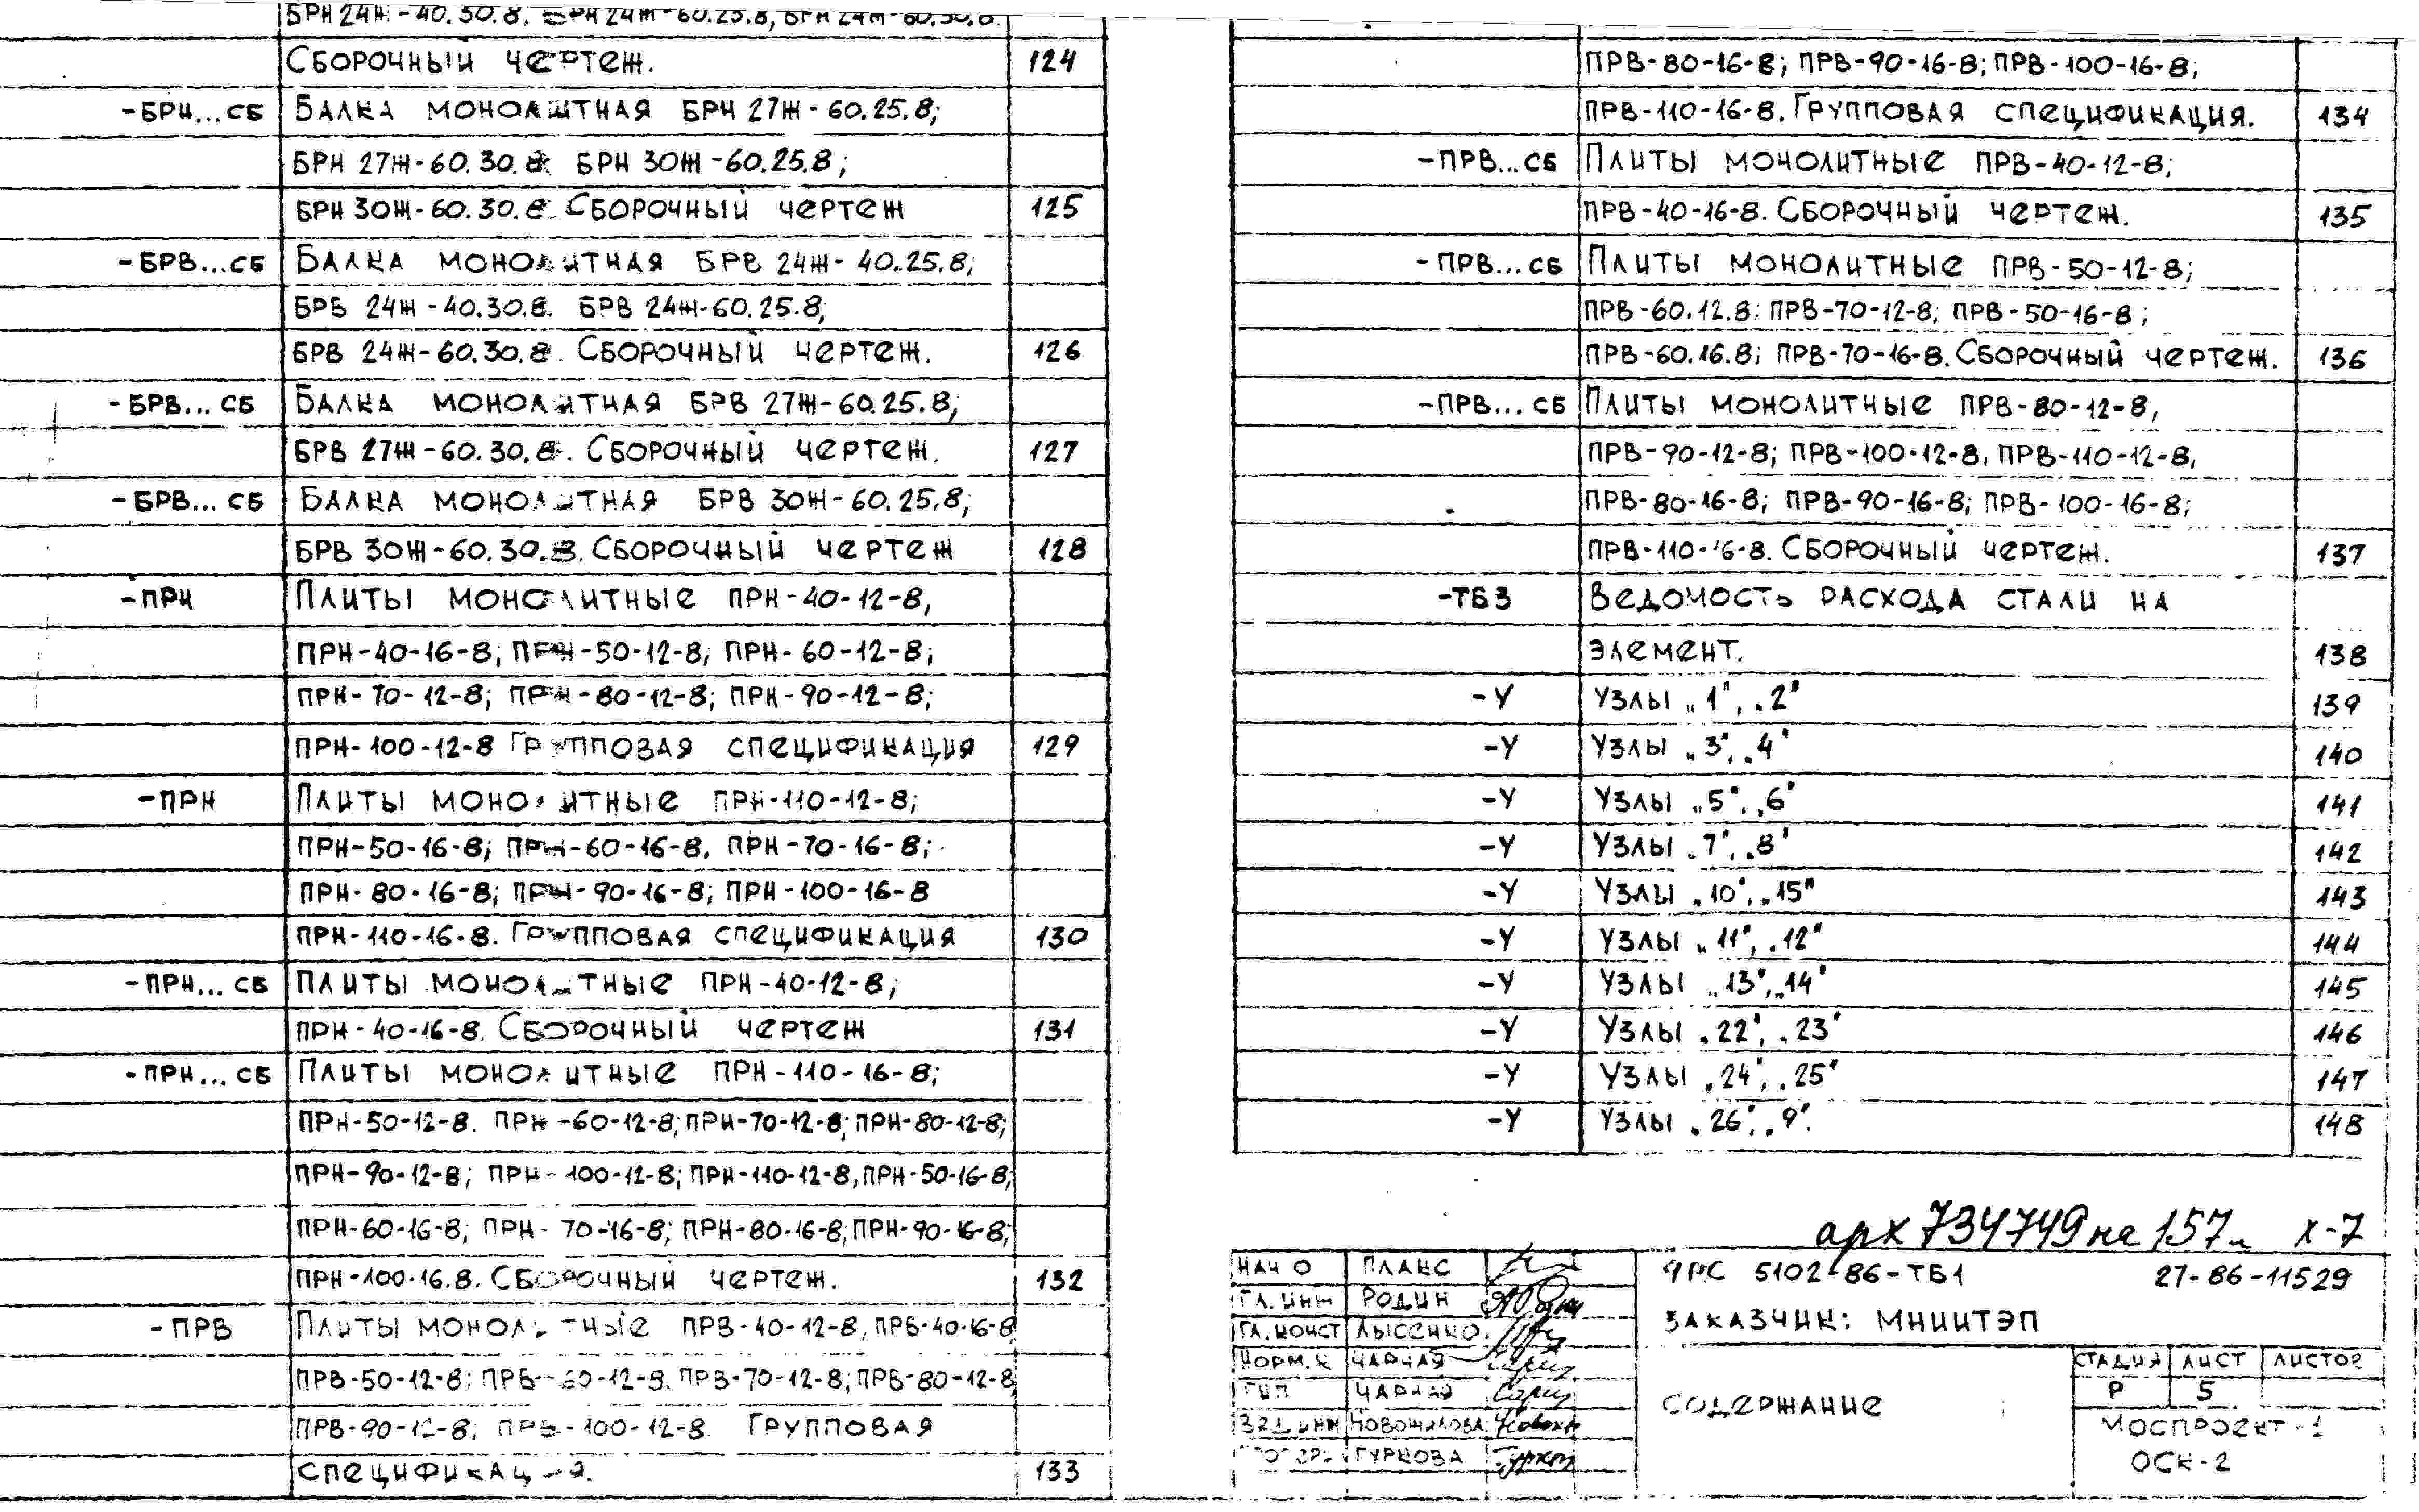 БРН 24Ж-40.30.8, БРН 24Ж-60.25.8, БРН 24Ж-60.30.8.
Сборочный чертеж. 124
-БРН...СБ Балка монолитная БРН 27Ж-60.25.8;
БРН 27Ж-60.30.8 БРН 30Ж-60.25.8;
БРН 30Ж-60.30.8. Сборочный чертеж 125
-БРВ...СБ Балка монолитная БРВ 24Ж-40.25.8;
БРВ 24Ж-40.30.8. БРВ 24Ж-60.25.8;
БРВ 24Ж-60.30.8. Сборочный чертеж. 126
-БРВ...СБ Балка монолитная БРВ 27Ж-60.25.8;
БРВ 27Ж-60.30.8. Сборочный чертеж. 127
-БРВ...СБ Балка монолитная БРВ 30Ж-60.25.8;
БРВ 30Ж-60.30.8. Сборочный чертеж 128
-ПРН Плиты монолитные ПРН-40-12-8,
ПРН-40-16-8; ПРН-50-12-8; ПРН-60-12-8;
ПРН-70-12-8; ПРН-80-12-8; ПРН-90-12-8;
ПРН-100-12-8 Групповая спецификация 129
-ПРН Плиты монолитные ПРН-110-12-8;
ПРН-50-16-8; ПРН-60-16-8, ПРН-70-16-8;
ПРН-80-16-8; ПРН-90-16-8; ПРН-100-16-8
ПРН-110-16-8. Групповая спецификация 130
-ПРН...СБ Плиты монолитные ПРН-40-12-8;
ПРН-40-16-8. Сборочный чертеж 131
-ПРН...СБ Плиты монолитные ПРН-110-16-8;
ПРН-50-12-8. ПРН-60-12-8; ПРН-70-12-8; ПРН-80-12-8;
ПРН-90-12-8; ПРН-100-12-8; ПРН-110-12-8, ПРН-50-16-8;
ПРН-60-16-8; ПРН-70-16-8; ПРН-80-16-8; ПРН-90-16-8;
ПРН-100.16.8. Сборочный чертеж. 132
-ПРВ Плиты монолитные ПРВ-40-12-8, ПРВ-40-16-8
ПРВ-50-12-8; ПРВ-60-12-8. ПРВ-70-12-8; ПРВ-80-12-8
ПРВ-90-12-8; ПРВ-100-12-8. Групповая
спецификация. 133
ПРВ-80-16-8; ПРВ-90-16-8; ПРВ-100-16-8;
ПРВ-110-16-8. Групповая спецификация. 134
-ПРВ...СБ Плиты монолитные ПРВ-40-12-8;
ПРВ-40-16-8. Сборочный чертеж. 135
-ПРВ...СБ Плиты монолитные ПРВ-50-12-8;
ПРВ-60.12.8; ПРВ-70-12-8; ПРВ-50-16-8;
ПРВ-60.16.8; ПРВ-70-16-8. Сборочный чертеж. 136
-ПРВ...СБ Плиты монолитные ПРВ-80-12-8,
ПРВ-90-12-8; ПРВ-100-12-8, ПРВ-110-12-8,
ПРВ-80-16-8; ПРВ-90-16-8; ПРВ-100-16-8;
ПРВ-110-16-8. Сборочный чертеж. 137
-ТБ3 Ведомость расхода стали на
элемент. 138
-У Узлы „1", „2" 139
-У Узлы „3", „4" 140
-У Узлы „5", „6" 141
-У Узлы „7", „8" 142
-У Узлы „10", „15" 143
-У Узлы „11", „12" 144
-У Узлы „13", „14" 145
-У Узлы „22", „23" 146
-У Узлы „24", „25" 147
-У Узлы „26", „9". 148
арх 734749 на 157л х-7
НАЧ О ПЛАКС
ГЛ. ИНЖ РОДИН
ГЛ. КОНСТ ЛЫСЕНКО.
НОРМ. К ЧАРНАЯ
ГИП ЧАРНАЯ
ВЕД ИНЖ НОВОЖИЛОВА
ГУРКОВА
ЧРС 5102-86-ТБ1 27-86-11529
ЗАКАЗЧИК: МНИИТЭП
СОДЕРЖАНИЕ
СТАДИЯ ЛИСТ ЛИСТОВ
Р 5
МОСПРОЕКТ-1
ОСК-2